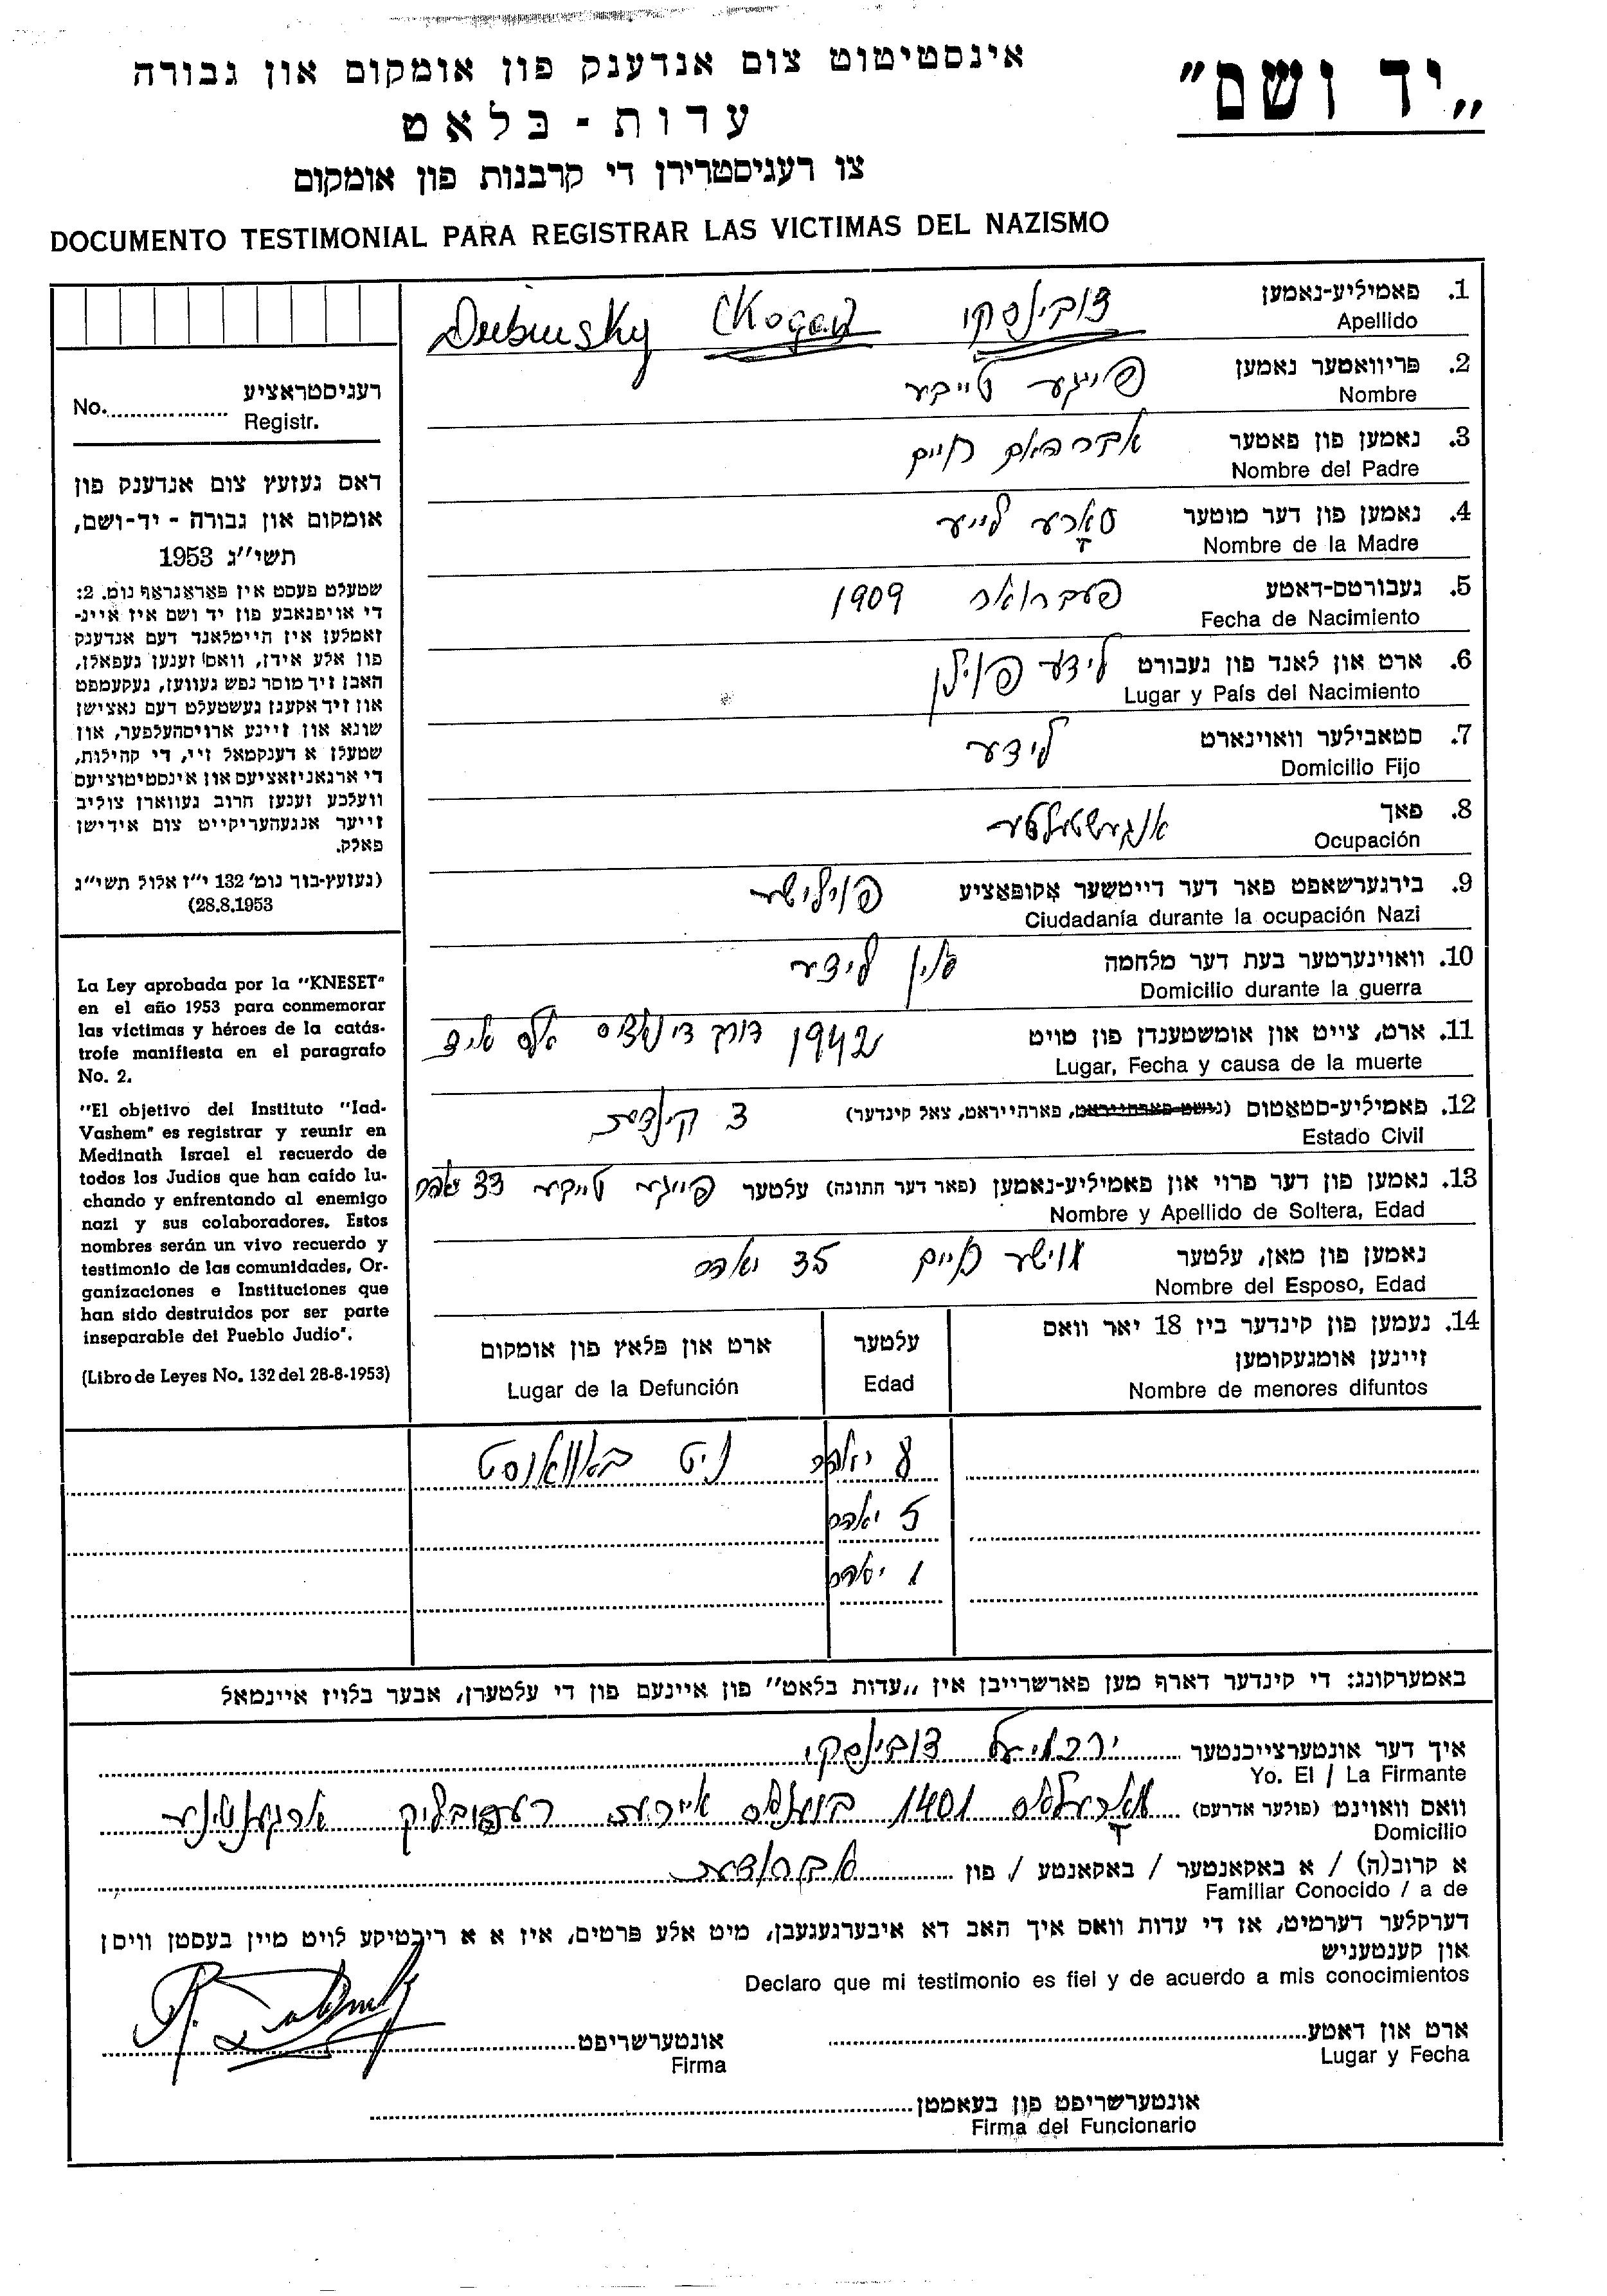 „יד ושם"
אינסטיטוט צום אנדענק פון אומקום און גבורה
עדות - בלאט
צו רעגיסטרירן די קרבנות פון אומקום
DOCUMENTO TESTIMONIAL PARA REGISTRAR LAS VICTIMAS DEL NAZISMO
1. פאמיליע-נאמען דובינסקי (Kogan) Dubinsky
Apellido
2. פריוואטער נאמען פייגע טייבע
Nombre
3. נאמען פון פאטער אברהאם חיים
Nombre del Padre
4. נאמען פון דער מוטער סארע לייע
Nombre de la Madre
5. געבורטס-דאטע פעברואר 1909
Fecha de Nacimiento
6. ארט און לאנד פון געבורט לידע פוילן
Lugar y País del Nacimiento
7. סטאבילער וואוינארט לידע
Domicilio Fijo
8. פאך אנגעשטעלטע
Ocupación
9. בירגערשאפט פאר דער דייטשער אָקופּאַציע פוילישע
Ciudadanía durante la ocupación Nazi
10. וואוינערטער בעת דער מלחמה אין לידע
Domicilio durante la guerra
11. ארט, צייט און אומשטענדן פון טויט 1942 דורך די נאציס אלס איד
Lugar, Fecha y causa de la muerte
12. פאמיליע-סטאטוס (נישט פארהייראט, פארהייראט, צאל קינדער) 3 קינדער
Estado Civil
13. נאמען פון דער פרוי און פאמיליע-נאמען (פאר דער חתונה) עלטער פייגע טייבע 33 יאהר
Nombre y Apellido de Soltera, Edad
נאמען פון מאן, עלטער אוישער חיים 35 יאהר
Nombre del Esposo, Edad
14. נעמען פון קינדער ביז 18 יאר וואס
זיינען אומגעקומען
Nombre de menores difuntos
עלטער
Edad
ארט און פלאץ פון אומקום
Lugar de la Defunción
8 יאהר ניט באוואוסט
5 יאהר
1 יאהר
No. רעגיסטראציע
Registr.
דאס געזעץ צום אנדענק פון
אומקום און גבורה - יד-ושם,
תשי"ג 1953
שטעלט פעסט אין פאראגראף נומ. 2:
די אויפגאבע פון יד ושם איז איינ-
זאמלען אין היימלאנד דעם אנדענק
פון אלע אידן, וואס זענען געפאלן,
האבן זיך מוסר נפש געווען, געקעמפט
און זיך אקעגן געשטעלט דעם נאצישן
שונא און זיינע ארויסהעלפער, און
שטעלן א דענקמאל זיי, די קהילות,
די ארגאניזאציעס און אינסטיטוציעס
וועלכע זענען חרוב געווארן צוליב
זייער אנגעהעריקייט צום אידישן
פאלק.
(געזעץ-בוך נומ' 132 י"ז אלול תשי"ג
28.8.1953)
La Ley aprobada por la "KNESET"
en el año 1953 para conmemorar
las víctimas y héroes de la catás-
trofe manifiesta en el paragrafo
No. 2.
"El objetivo del Instituto "Iad-
Vashem" es registrar y reunir en
Medinath Israel el recuerdo de
todos los Judíos que han caído lu-
chando y enfrentando al enemigo
nazi y sus colaboradores. Estos
nombres serán un vivo recuerdo y
testimonio de las comunidades, Or-
ganizaciones e Instituciones que
han sido destruidos por ser parte
inseparable del Pueblo Judío".
(Libro de Leyes No. 132 del 28-8-1953)
באמערקונג: די קינדער דארף מען פארשרייבן אין „עדות בלאט" פון איינעם פון די עלטערן, אבער בלויז איינמאל
איך דער אונטערצייכנטער ירחמיאל דובינסקי
Yo. El / La Firmante
וואס וואוינט (פולער אדרעס) 1401 בוענאס איירעס רעפובליק ארגענטינע
Domicilio
א קרוב(ה) / א באקאנטער / באקאנטע / פון
Familiar Conocido / a de
דערקלער דערמיט, אז די עדות וואס איך האב דא איבערגעגעבן, מיט אלע פרטים, איז א א ריכטיקע לויט מיין בעסטן וויסן
און קענטעניש
Declaro que mi testimonio es fiel y de acuerdo a mis conocimientos
ארט און דאטע
Lugar y Fecha
אונטערשריפט
Firma
אונטערשריפט פון בעאמטן
Firma del Funcionario